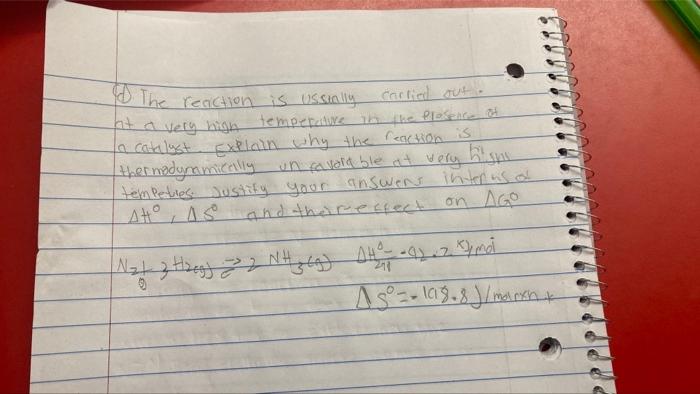 d) The reaction is ussinlly carried out.
at a very high temperature in the presence of
a catalyst. Explain why the reaction is
thermodynamically unfavorable at very high
tempetures Justify your answers
ΔH°, ΔS° and their effect on ΔG°
N2 + 3 H2(g) ⇌ 2 NH3(g) ΔH° -92.2 KJ/mol
ΔS° = -198.8 J/